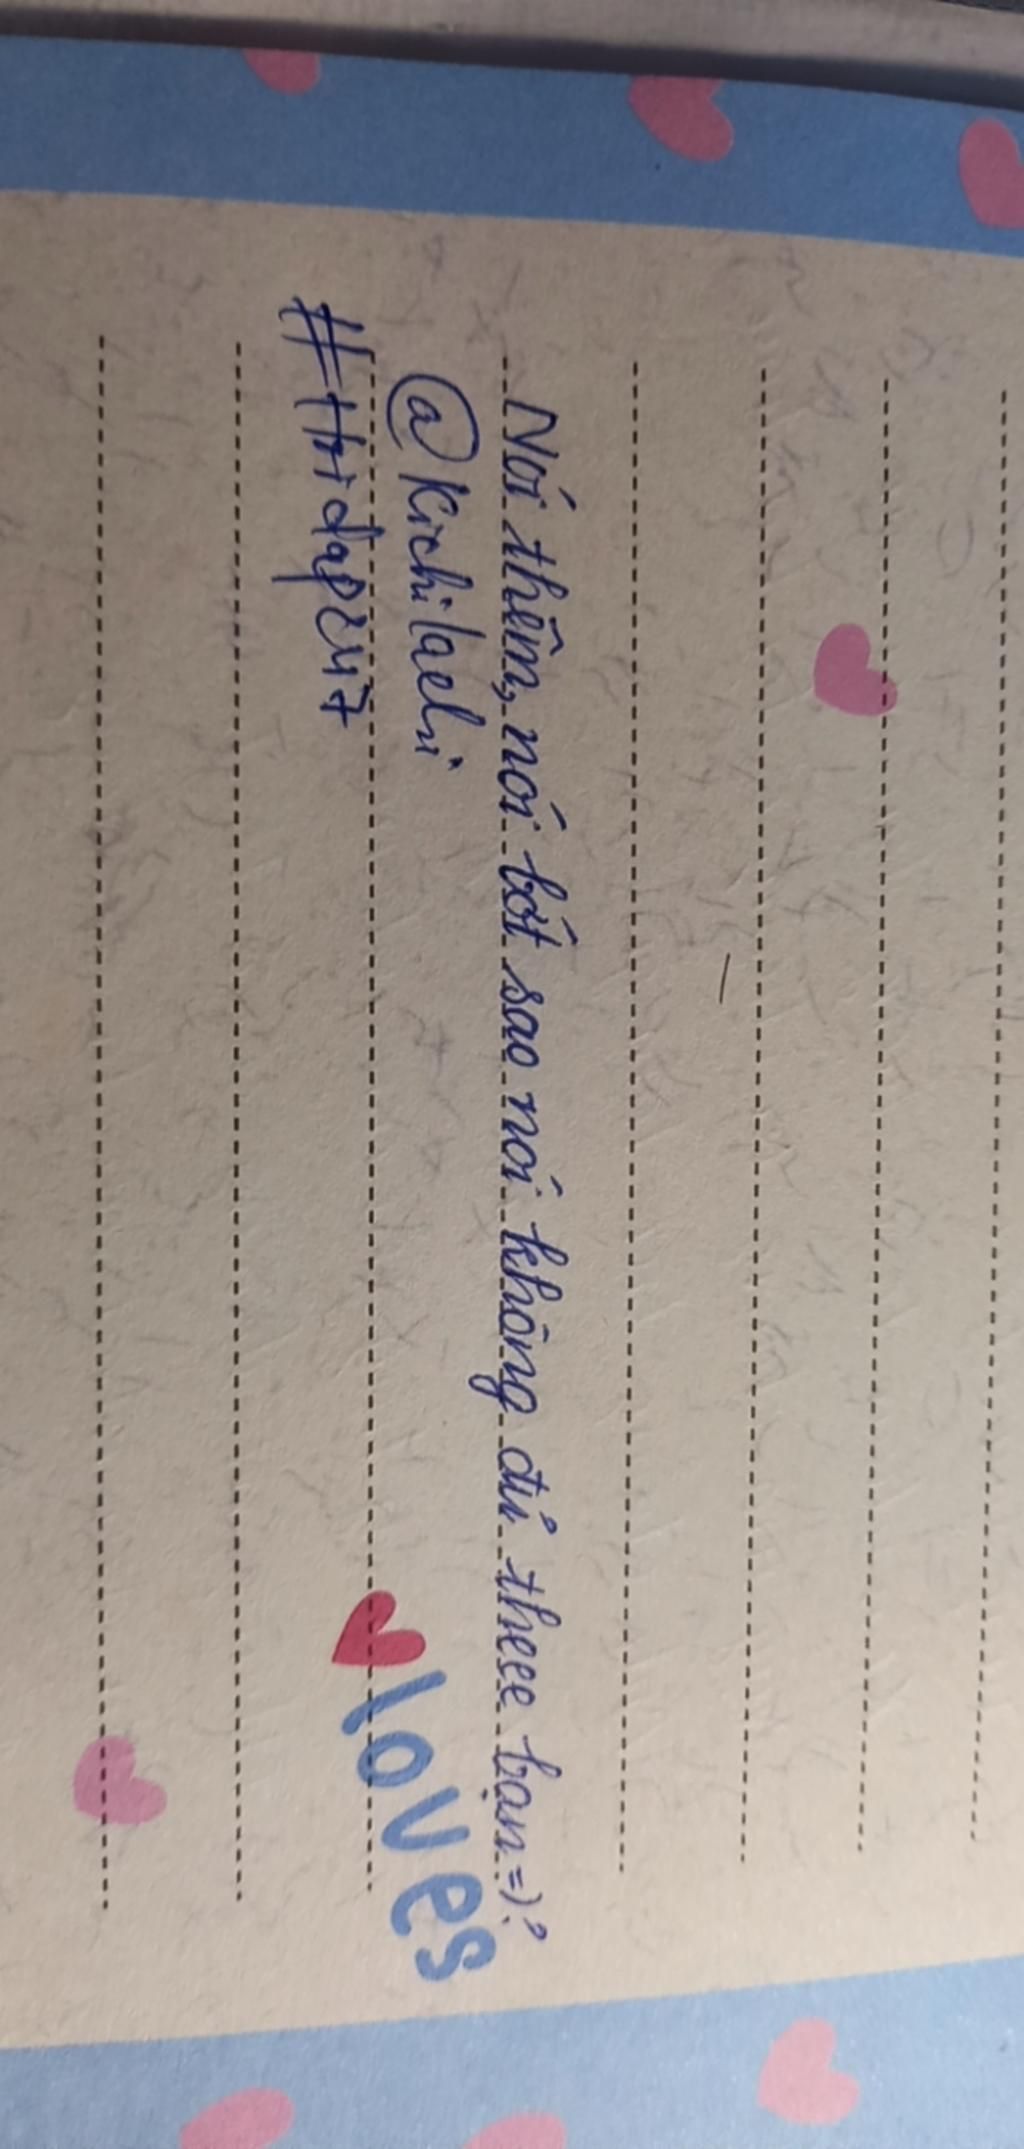 Nói thêm, nói bớt sao nói không đủ theee bạn=)?
@Kichilaehi
#Hoidap247
loves